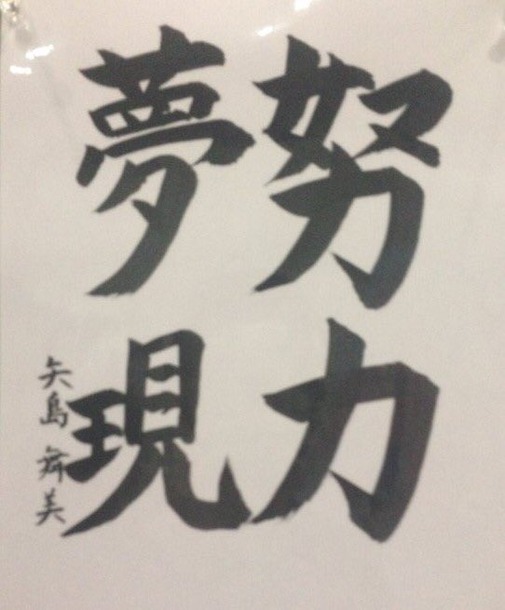 努力
夢現
矢島 舞美